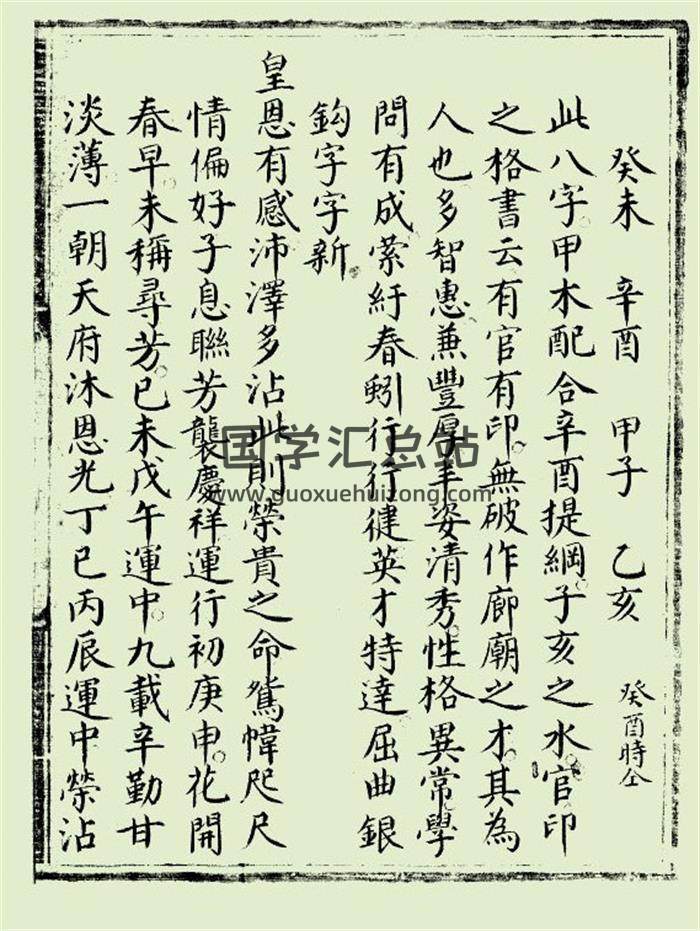 癸未 辛酉 甲子 乙亥 癸酉時仝
此八字甲木配合辛酉提綱子亥之水官印
之格書云有官有印無破作廊廟之才其為
人也多智惠兼豐厚丰姿清秀性格異常學
問有成縈紆春蚓行行健英才特達屈曲銀
鈎字字新
皇恩有感沛澤多沾此則榮貴之命鴛幃咫尺
情偏好子息聯芳襲慶祥運行初庚申花開
春早未稱尋芳已未戊午運中九載辛勤甘
淡薄一朝天府沐恩光丁巳丙辰運中榮沾
国学汇总站
www.guoxuehuizong.com